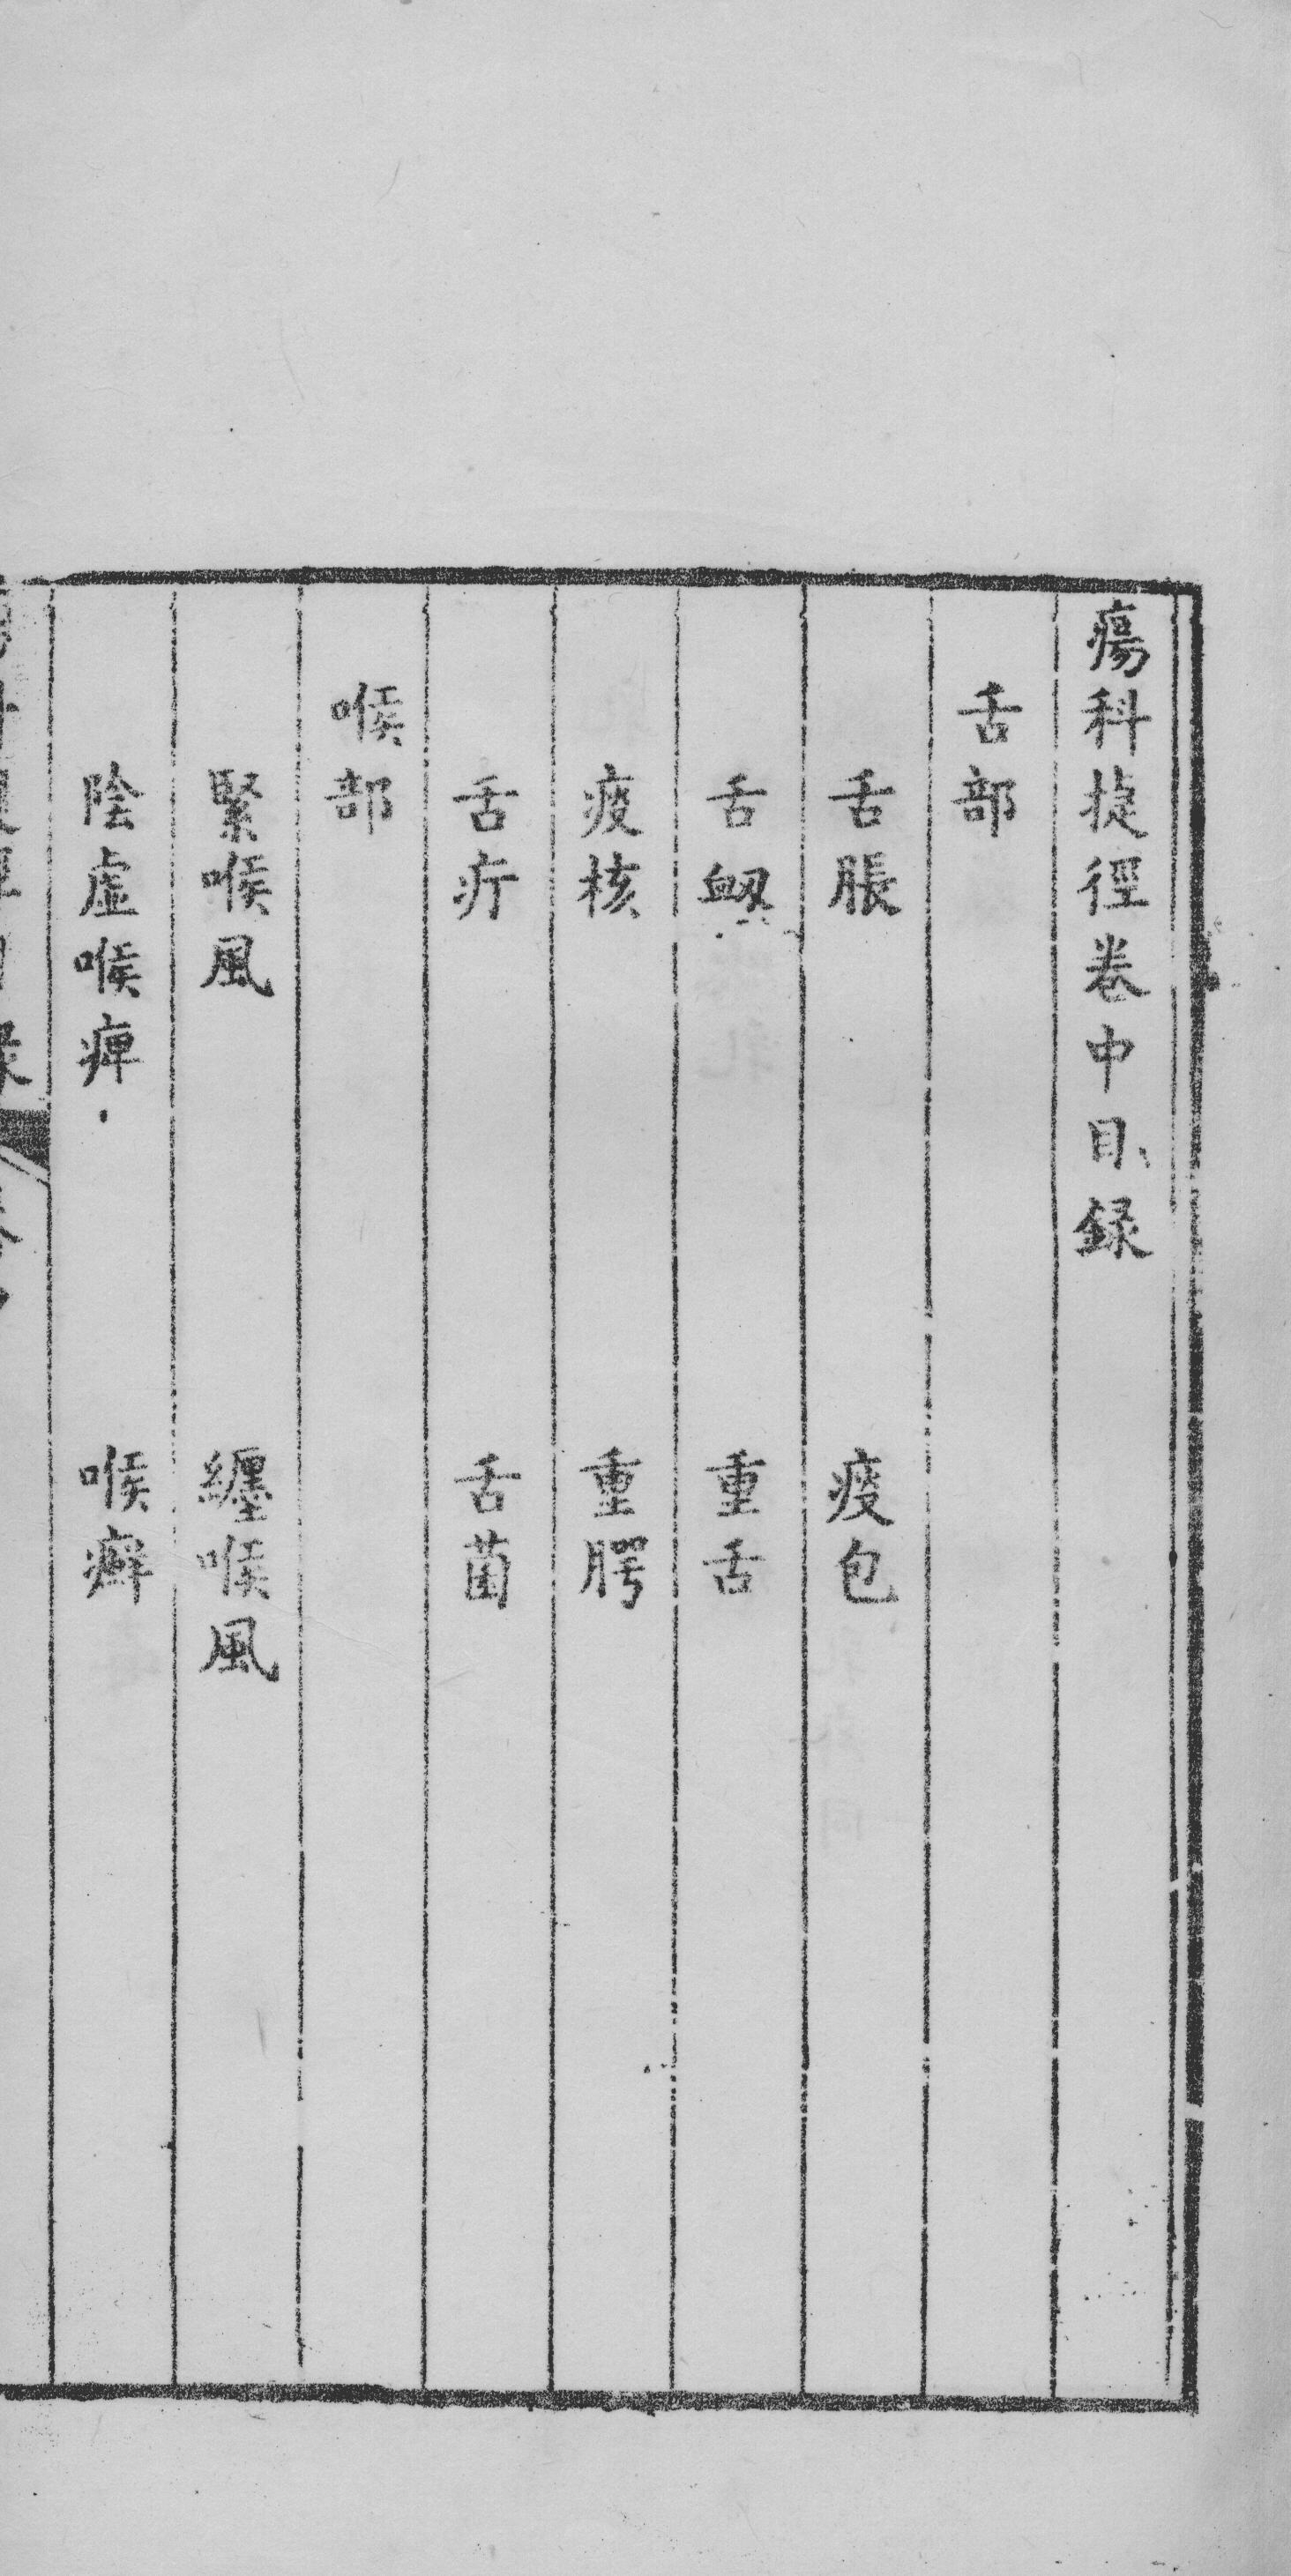 瘍科捷徑卷中目錄
舌部
舌脹 痰包
舌衂 重舌
痰核 重腭
舌疔 舌菌
喉部
緊喉風 纏喉風
陰虛喉痺 喉癬